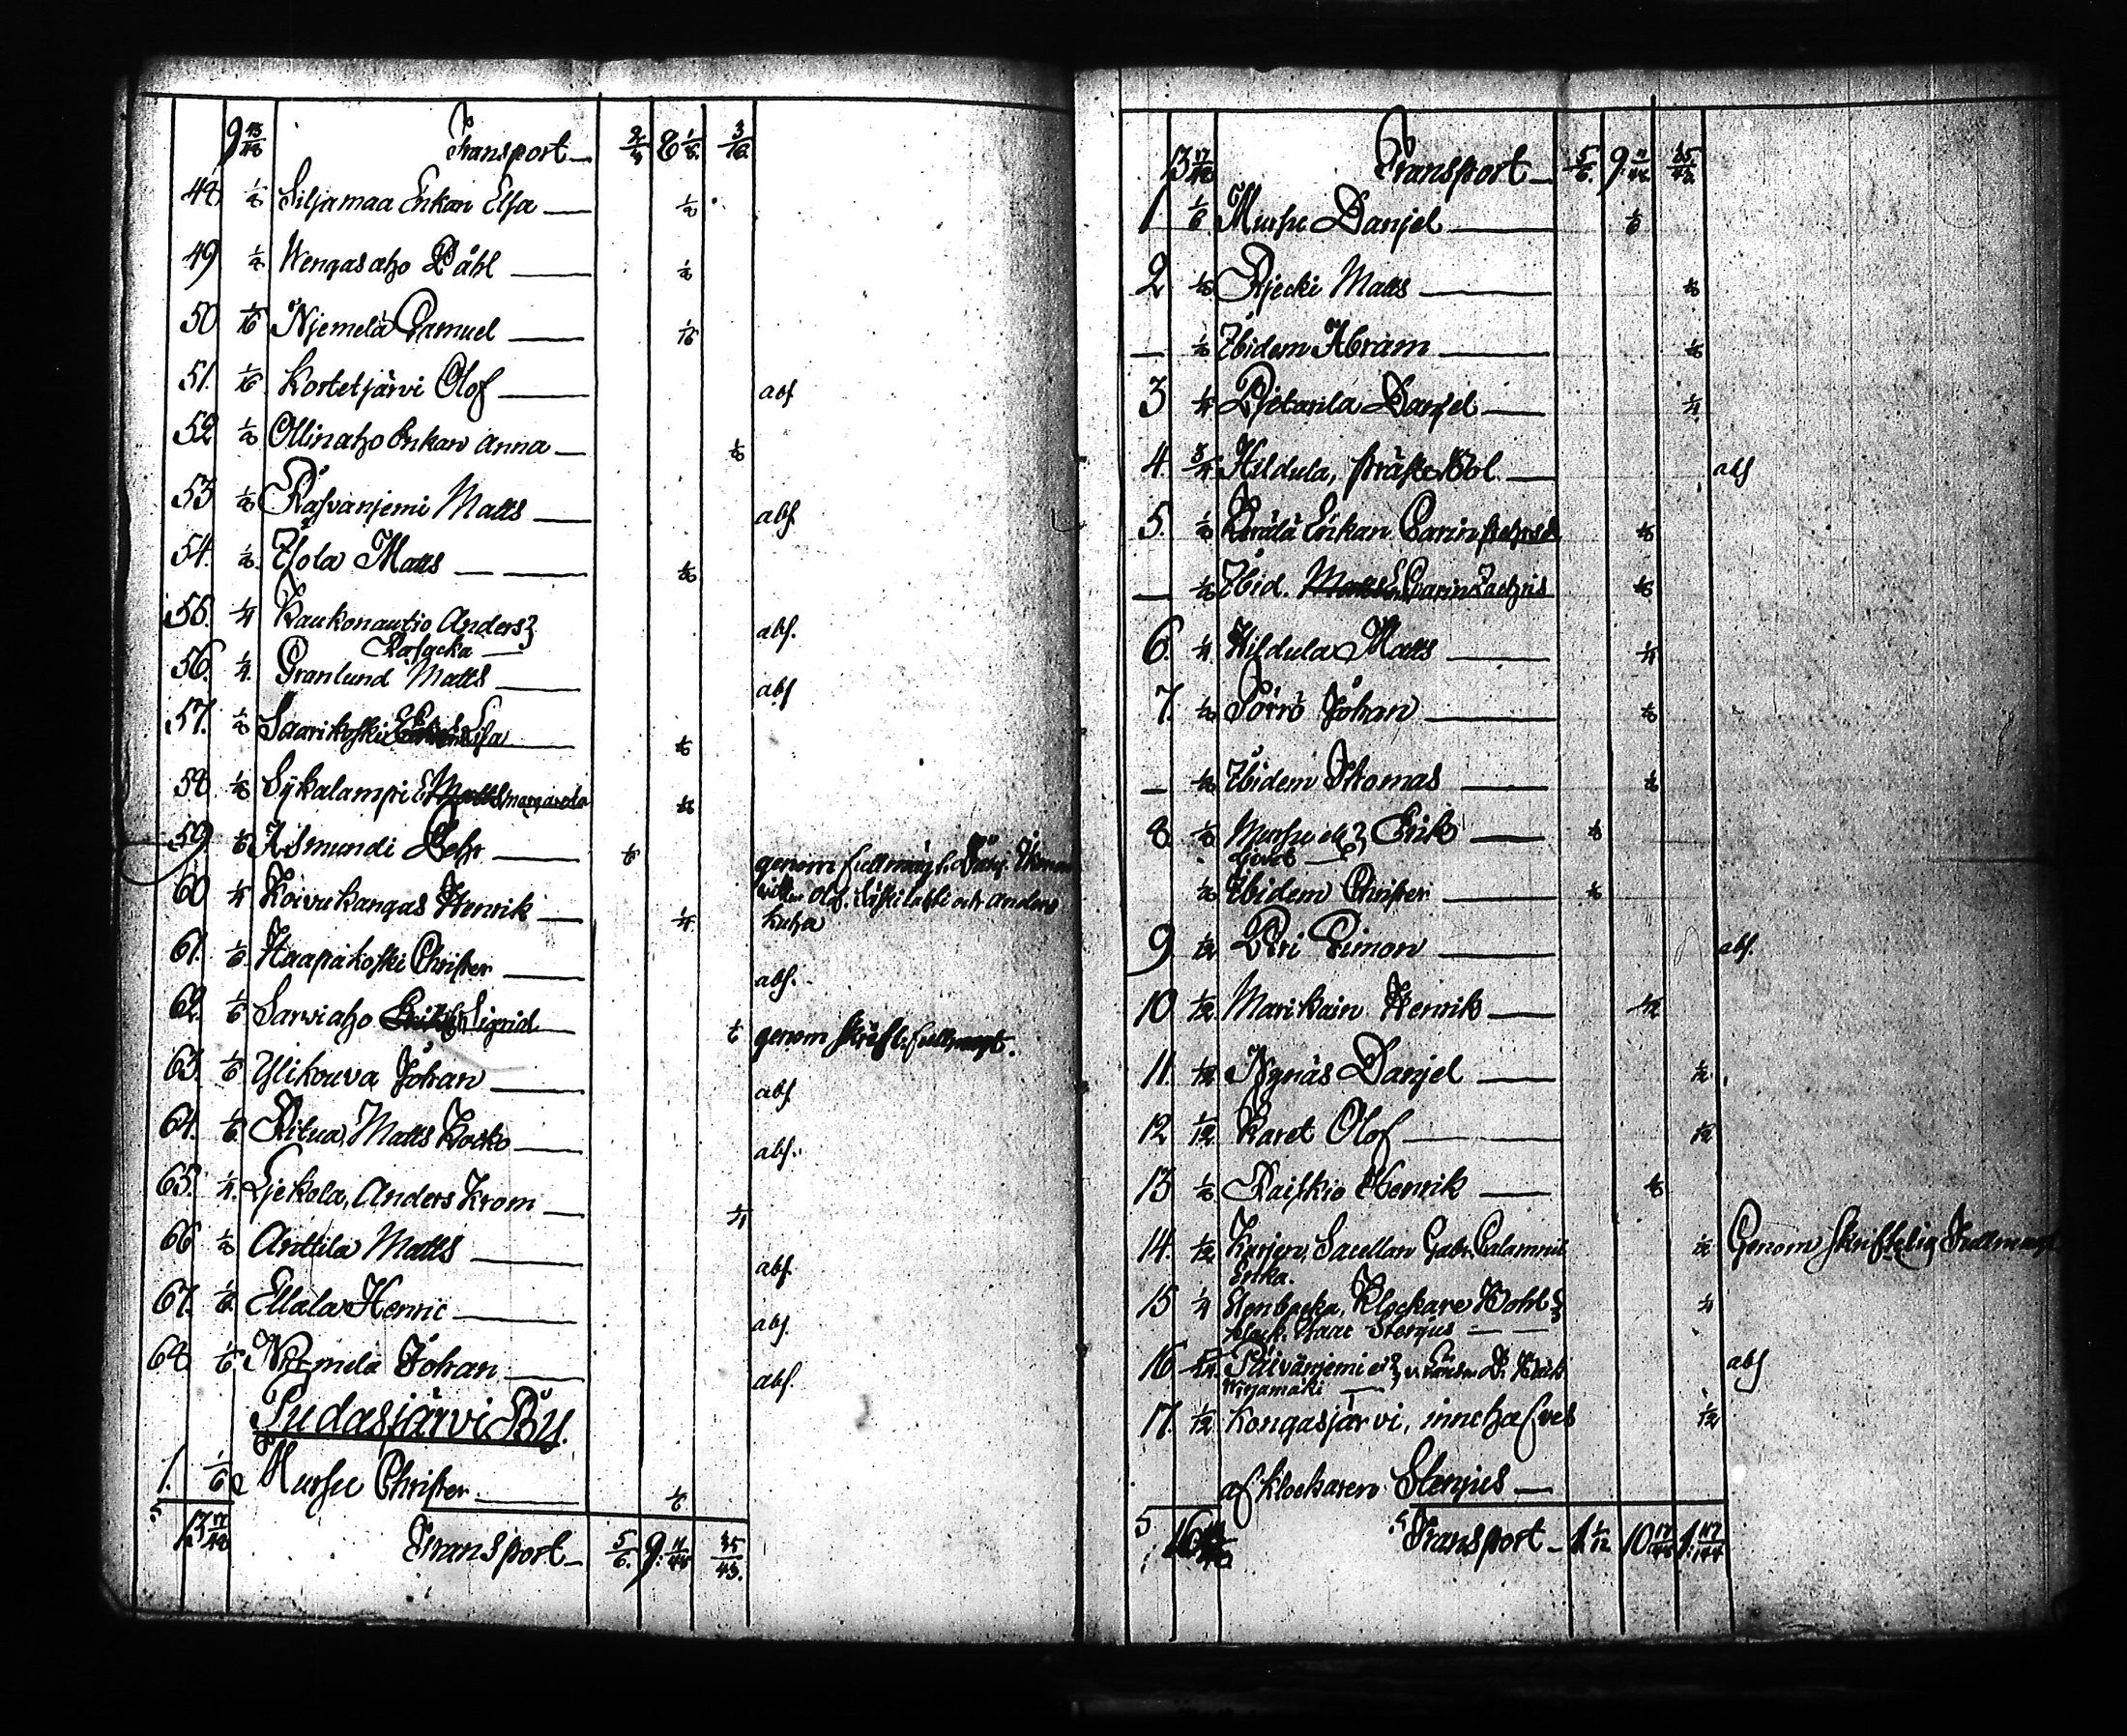 9 13/48 Transport 2/3 8 1/8 3/16
48 1/8 Siljamaa Enkan Elsa 1/8
49 1/8 Wengasaho Påhl 1/8
50 1/16 Njemelä Samuel 1/16
51. 1/16 Kortetjärvi Olof abs
52 1/8 Ollinaho Enkan Anna 1/8
53 1/8 Rasvanjemi Matts abs
54. 1/8 Isola Matts 1/8
55. 1/4 Kaukonautio Anders abs.
56. 1/4 Granlund Matts abs
57. 1/8 Saarikoski Lisa 1/8
58 1/8 Sykalampi E Matts margareta 1/8
59 1/6 Asmundi Pehr 1/6 genom fullmägt.
60 1/4 Koivukangas Henrik 1/4 Olof och Anders
Kuha
61. 1/6 Haapakoski Christer abs.
62. 1/6 Sarviaho Erik Sigrid 1/6 genom skriftl. fullmagt.
63 1/6 Ylikouva Johan abs
64. 1/6 Ritua, Matts Kocko abs.
65. 1/4 Ljekola, Anders Krom 1/4
66 1/8 Anttila Matts abs.
67. 1/6 Ellala Henric abs.
68 1/6 Njemelä Johan abs.
Pudasjärvi By.
1. 1/6 Mursu Christer 1/6
13 17/48 Transport 5/6. 9. 11/48 35/48.
13 17/48 Transport 5/6. 9. 11/48 35/48.
1 1/6 Mursu Danjel 1/6
2 1/8 Rjecki Matts 1/8
— 1/8 Ibidem Abram 1/8
3 1/4 Pjetarila Danjel 1/4
4. 3/4 Hildula, präste Bol. abs
5. 1/8 Enkan Carin 1/8
— 1/8 Ibid. Matts Carin Zachris 1/8
6. 1/4 Hildula Matts 1/4
7. 1/8 Törrö Johan 1/8
— 1/8 Ibidem Thomas 1/8
8. 1/8 Mursu Erik 1/8
1/8 Ibidem Christer 1/8
9 1/12 Piri Simon abs.
10 1/12 Marikain Henrik 1/12
11. 1/12 Nygnäs Danjel 1/12
12 1/12 Karet Olof 1/12
13 1/8 Raiskio Henrik 1/8
14. 1/12 Kurjen, Sacellan Gabr. Calamnii 1/12 Genom skriftelig Fullmagt
Enka.
15 1/4 Stenbacka, Klockare Bohl 1/4
klock. Isaac Stenjus
16 Päivänjemi abs
17. 1/12 Kongasjärvi, innehafves 1/12
af klockaren Stenjus
16 Transport 1 1/12 10 17/48 1. 117/144